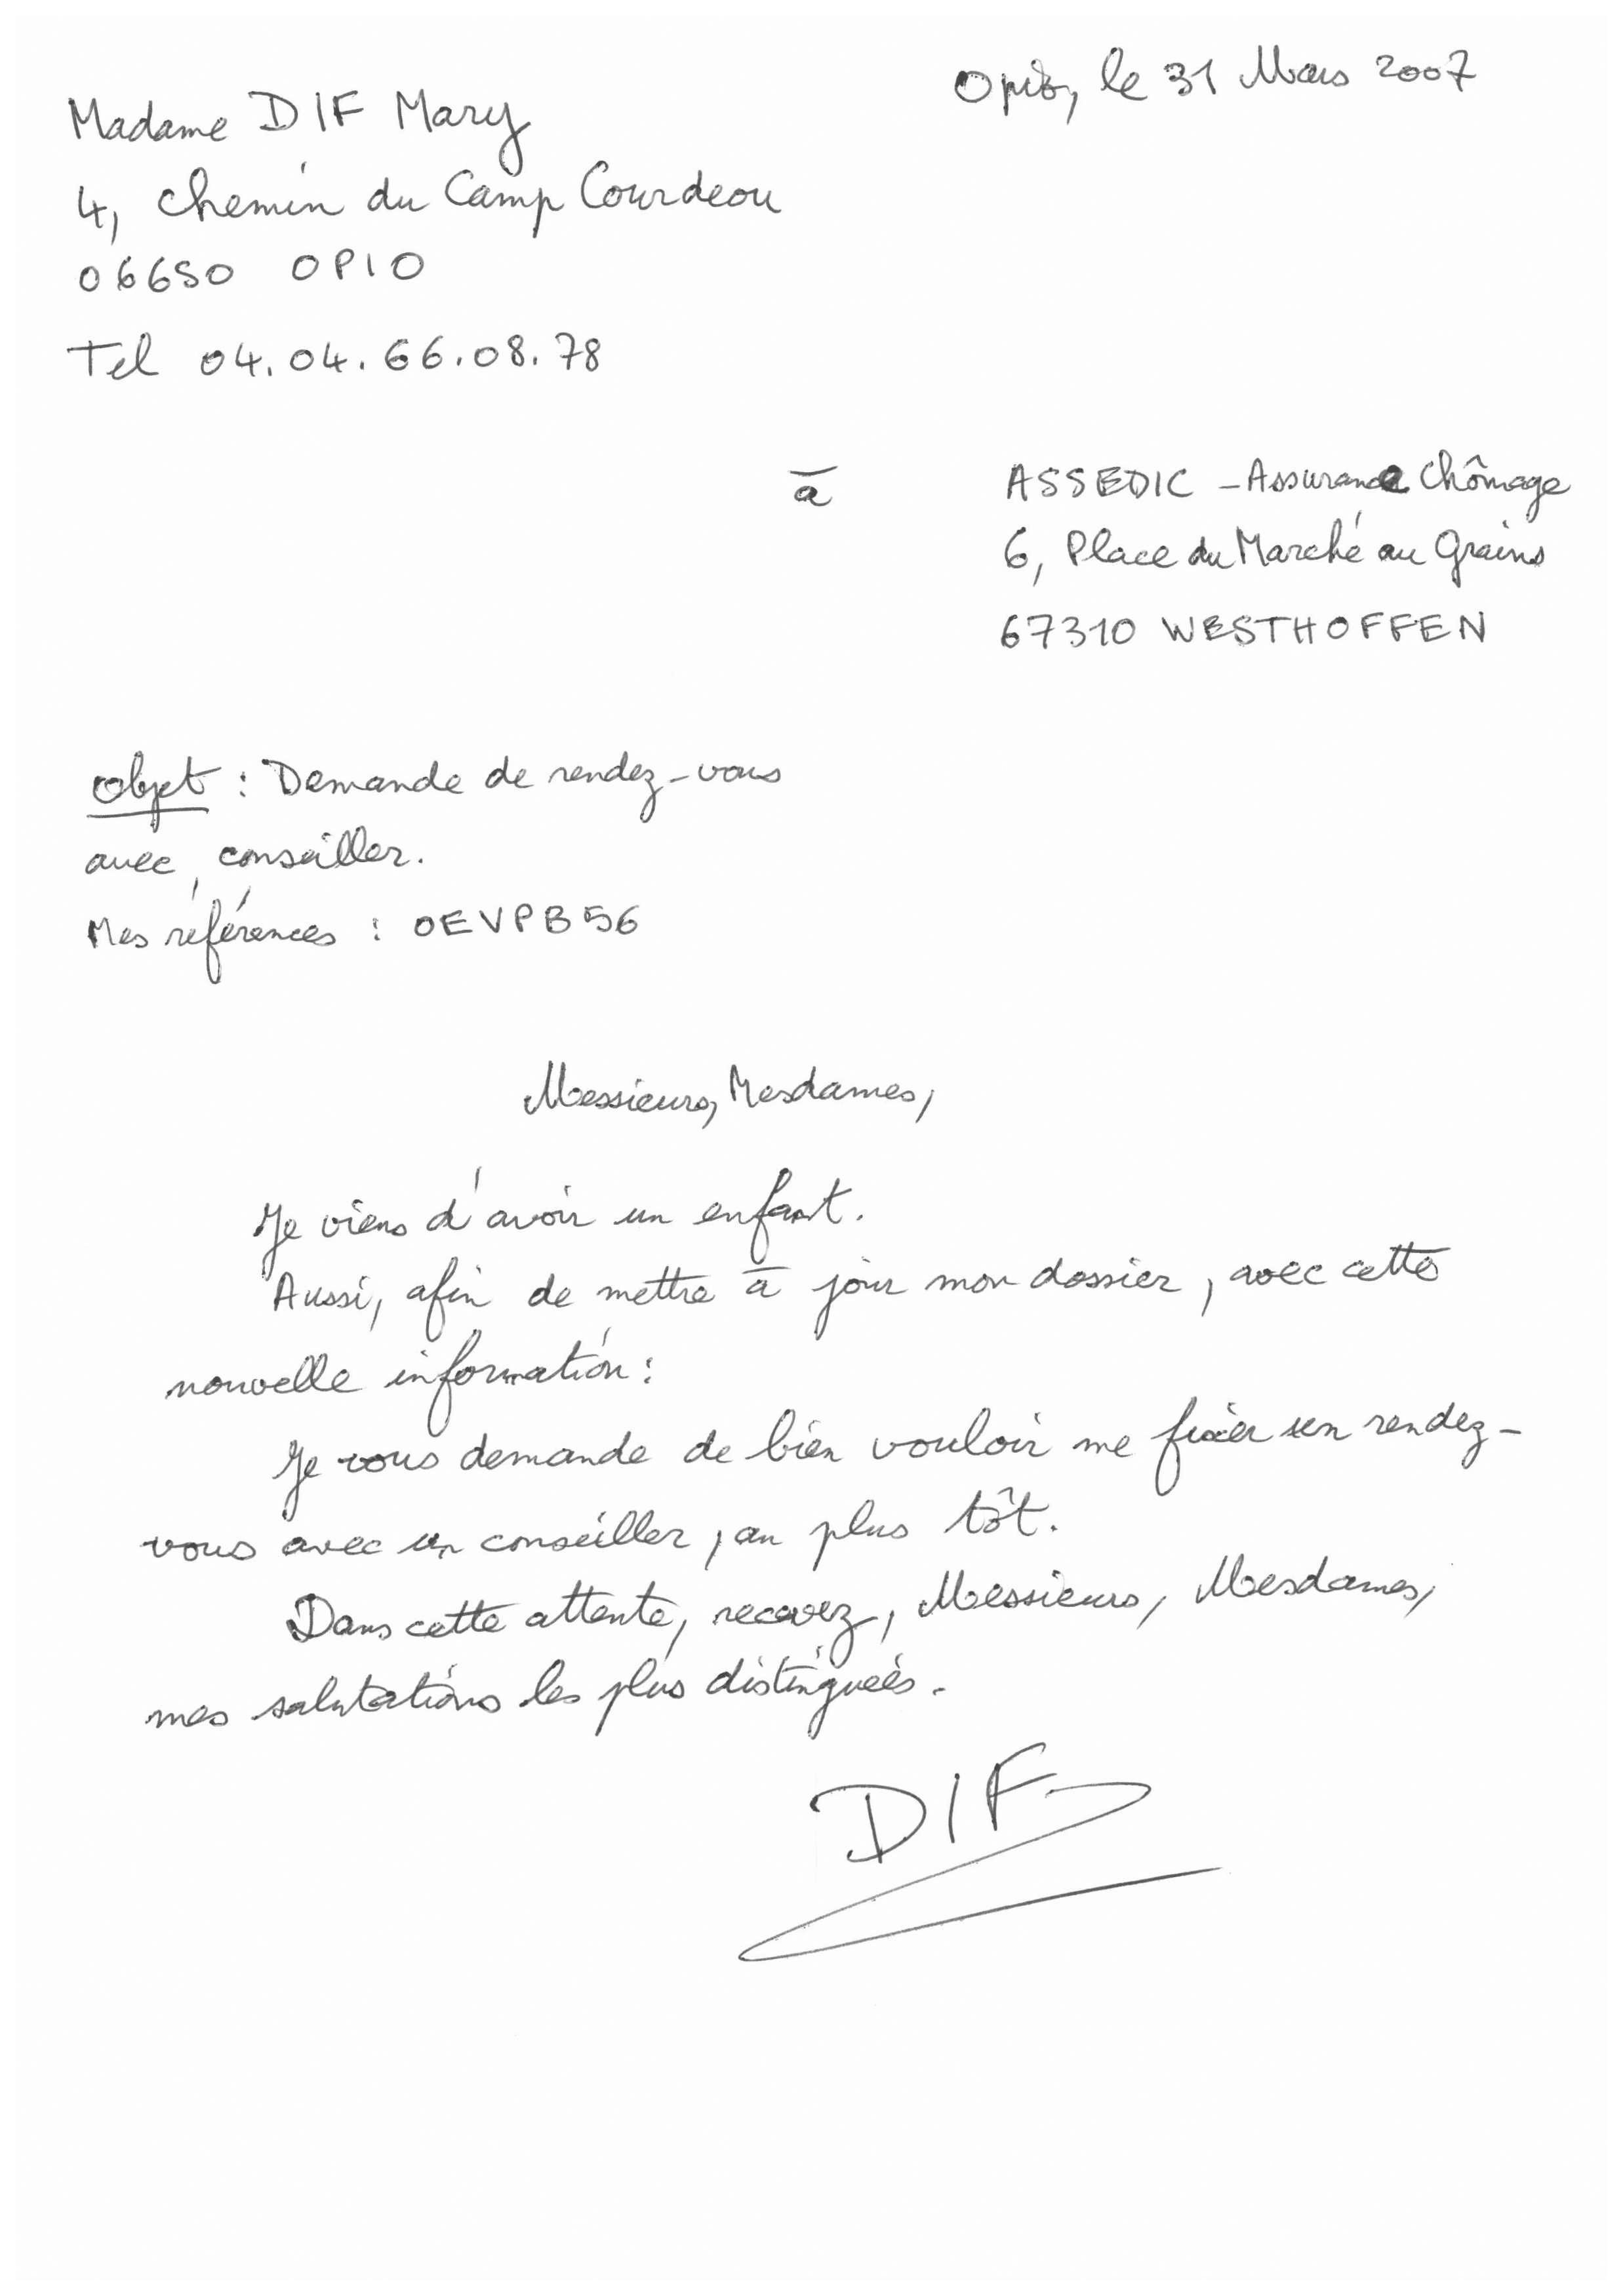 Opio, le 31 Mars 2007
Madame DIF Mary
4, chemin du Camp Courdeou
06650 OPIO
Tel 04.04.66.08.78
à
ASSEDIC - Assurance Chômage
6, Place du Marché au Grains
67310 WESTHOFFEN
Objet : Demande de rendez-vous
avec conseiller.
Mes références : OEVPB56
Messieurs, Mesdames,
Je viens d'avoir un enfant.
Aussi, afin de mettre à jour mon dossier, avec cette
nouvelle information :
Je vous demande de bien vouloir me fixer un rendez-
vous avec un conseiller, au plus tôt.
Dans cette attente, recevez, Messieurs, Mesdames,
mes salutations les plus distinguées.
DIF